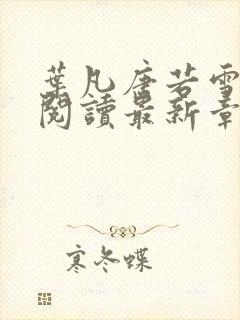 葉凡唐若雪
閱讀最新章
寒冬蝶